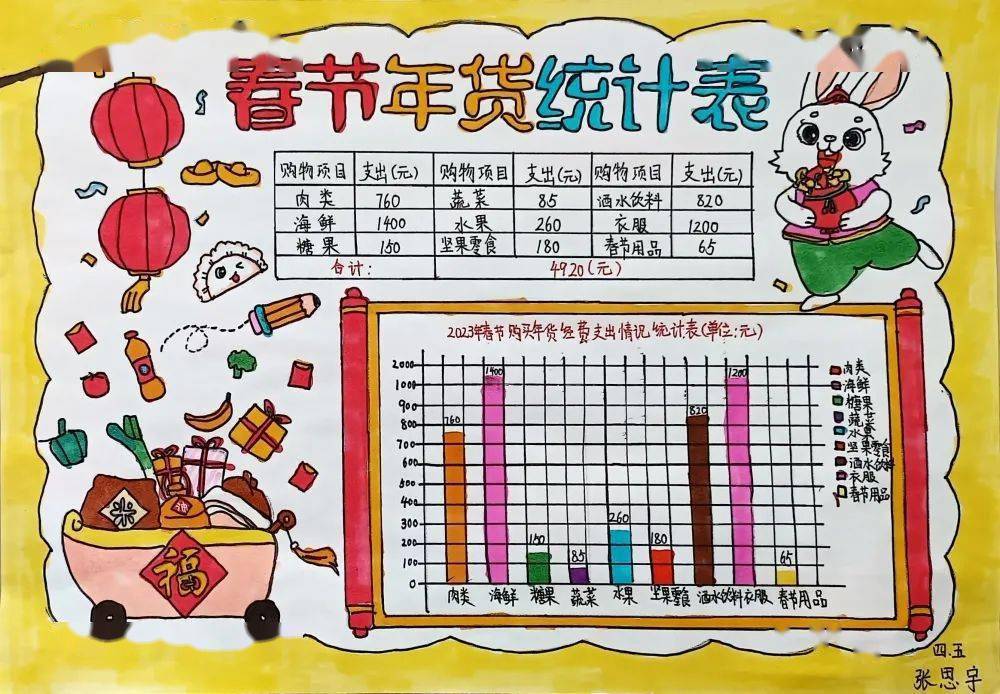 春节年货统计表
购物项目 支出(元) 购物项目 支出(元) 购物项目 支出(元)
肉类 760 蔬菜 85 酒水饮料 820
海鲜 1400 水果 260 衣服 1200
糖果 150 坚果零食 180 春节用品 65
合计: 4920(元)
2023年春节购买年货经费支出情况统计表(单位:元)
2000
1000
900
800
700
600
500
400
300
200
100
0
760
1400
150
85
260
180
820
1200
65
肉类 海鲜 糖果 蔬菜 水果 坚果零食 酒水饮料 衣服 春节用品
肉类
海鲜
糖果
蔬菜
水果
坚果零食
酒水饮料
衣服
春节用品
米
福
四.五
张思宇